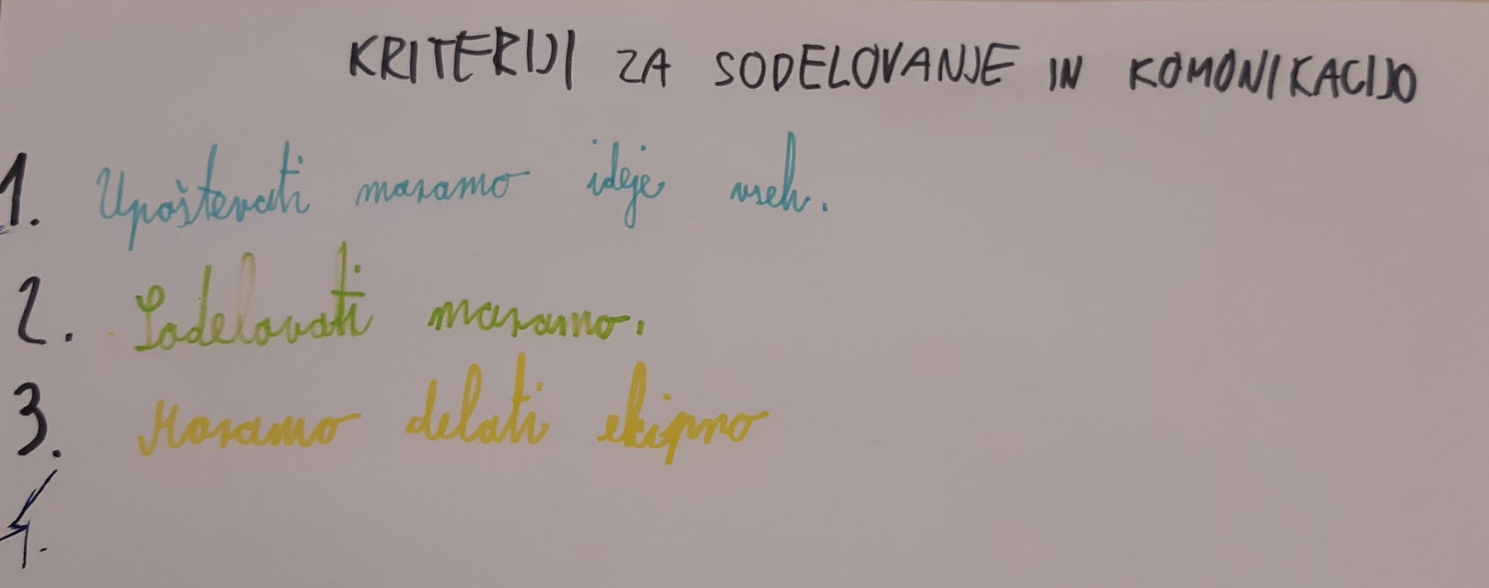 KRITERIJI ZA SODELOVANJE IN KOMONIKACIJO
1. Upoštevati moramo ideje vseh.
2. Sodelovati moramo.
3. Moramo delati ekipno
4.